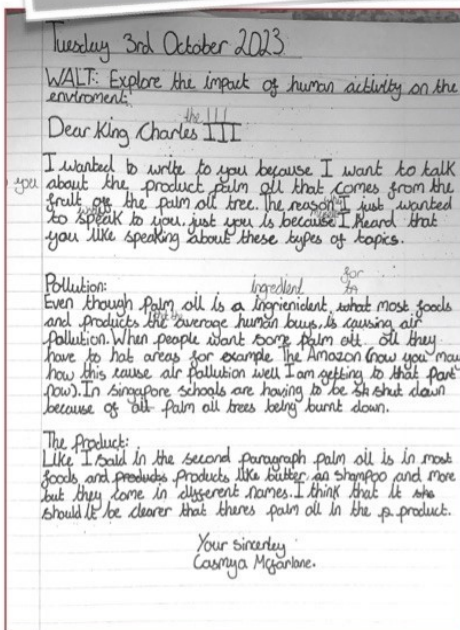 Tuesday 3rd October 2023
WALT: Explore the impact of human activity on the
enviroment.
the III
Dear King Charles III
I wanted to write to you because I want to talk
you about the product palm oil that comes from the
fruit of the palm oil tree. The reason I just wanted
to speak to you. just you is because I heard that
you like speaking about these types of topics.
Pollution:
ingredient for
Even though palm oil is a Ingrienident, what most foods
and products the average human buys, is causing air
Pollution. When people want some palm oil. oil they
have to hot areas for example The Amazon (now you may
how this cause air Pollution well I am getting to that part
now). In Singapore schools are having to be sh shut down
because of all palm oil trees being burnt down.
The Product:
Like I said in the second paragraph palm oil is in most
foods and products products like butter an shampoo and more
but they come in different names. I think that it sho
should it be clearer that theres palm oil in the p product.
Your sincerley
Casmya Mcfarlane.